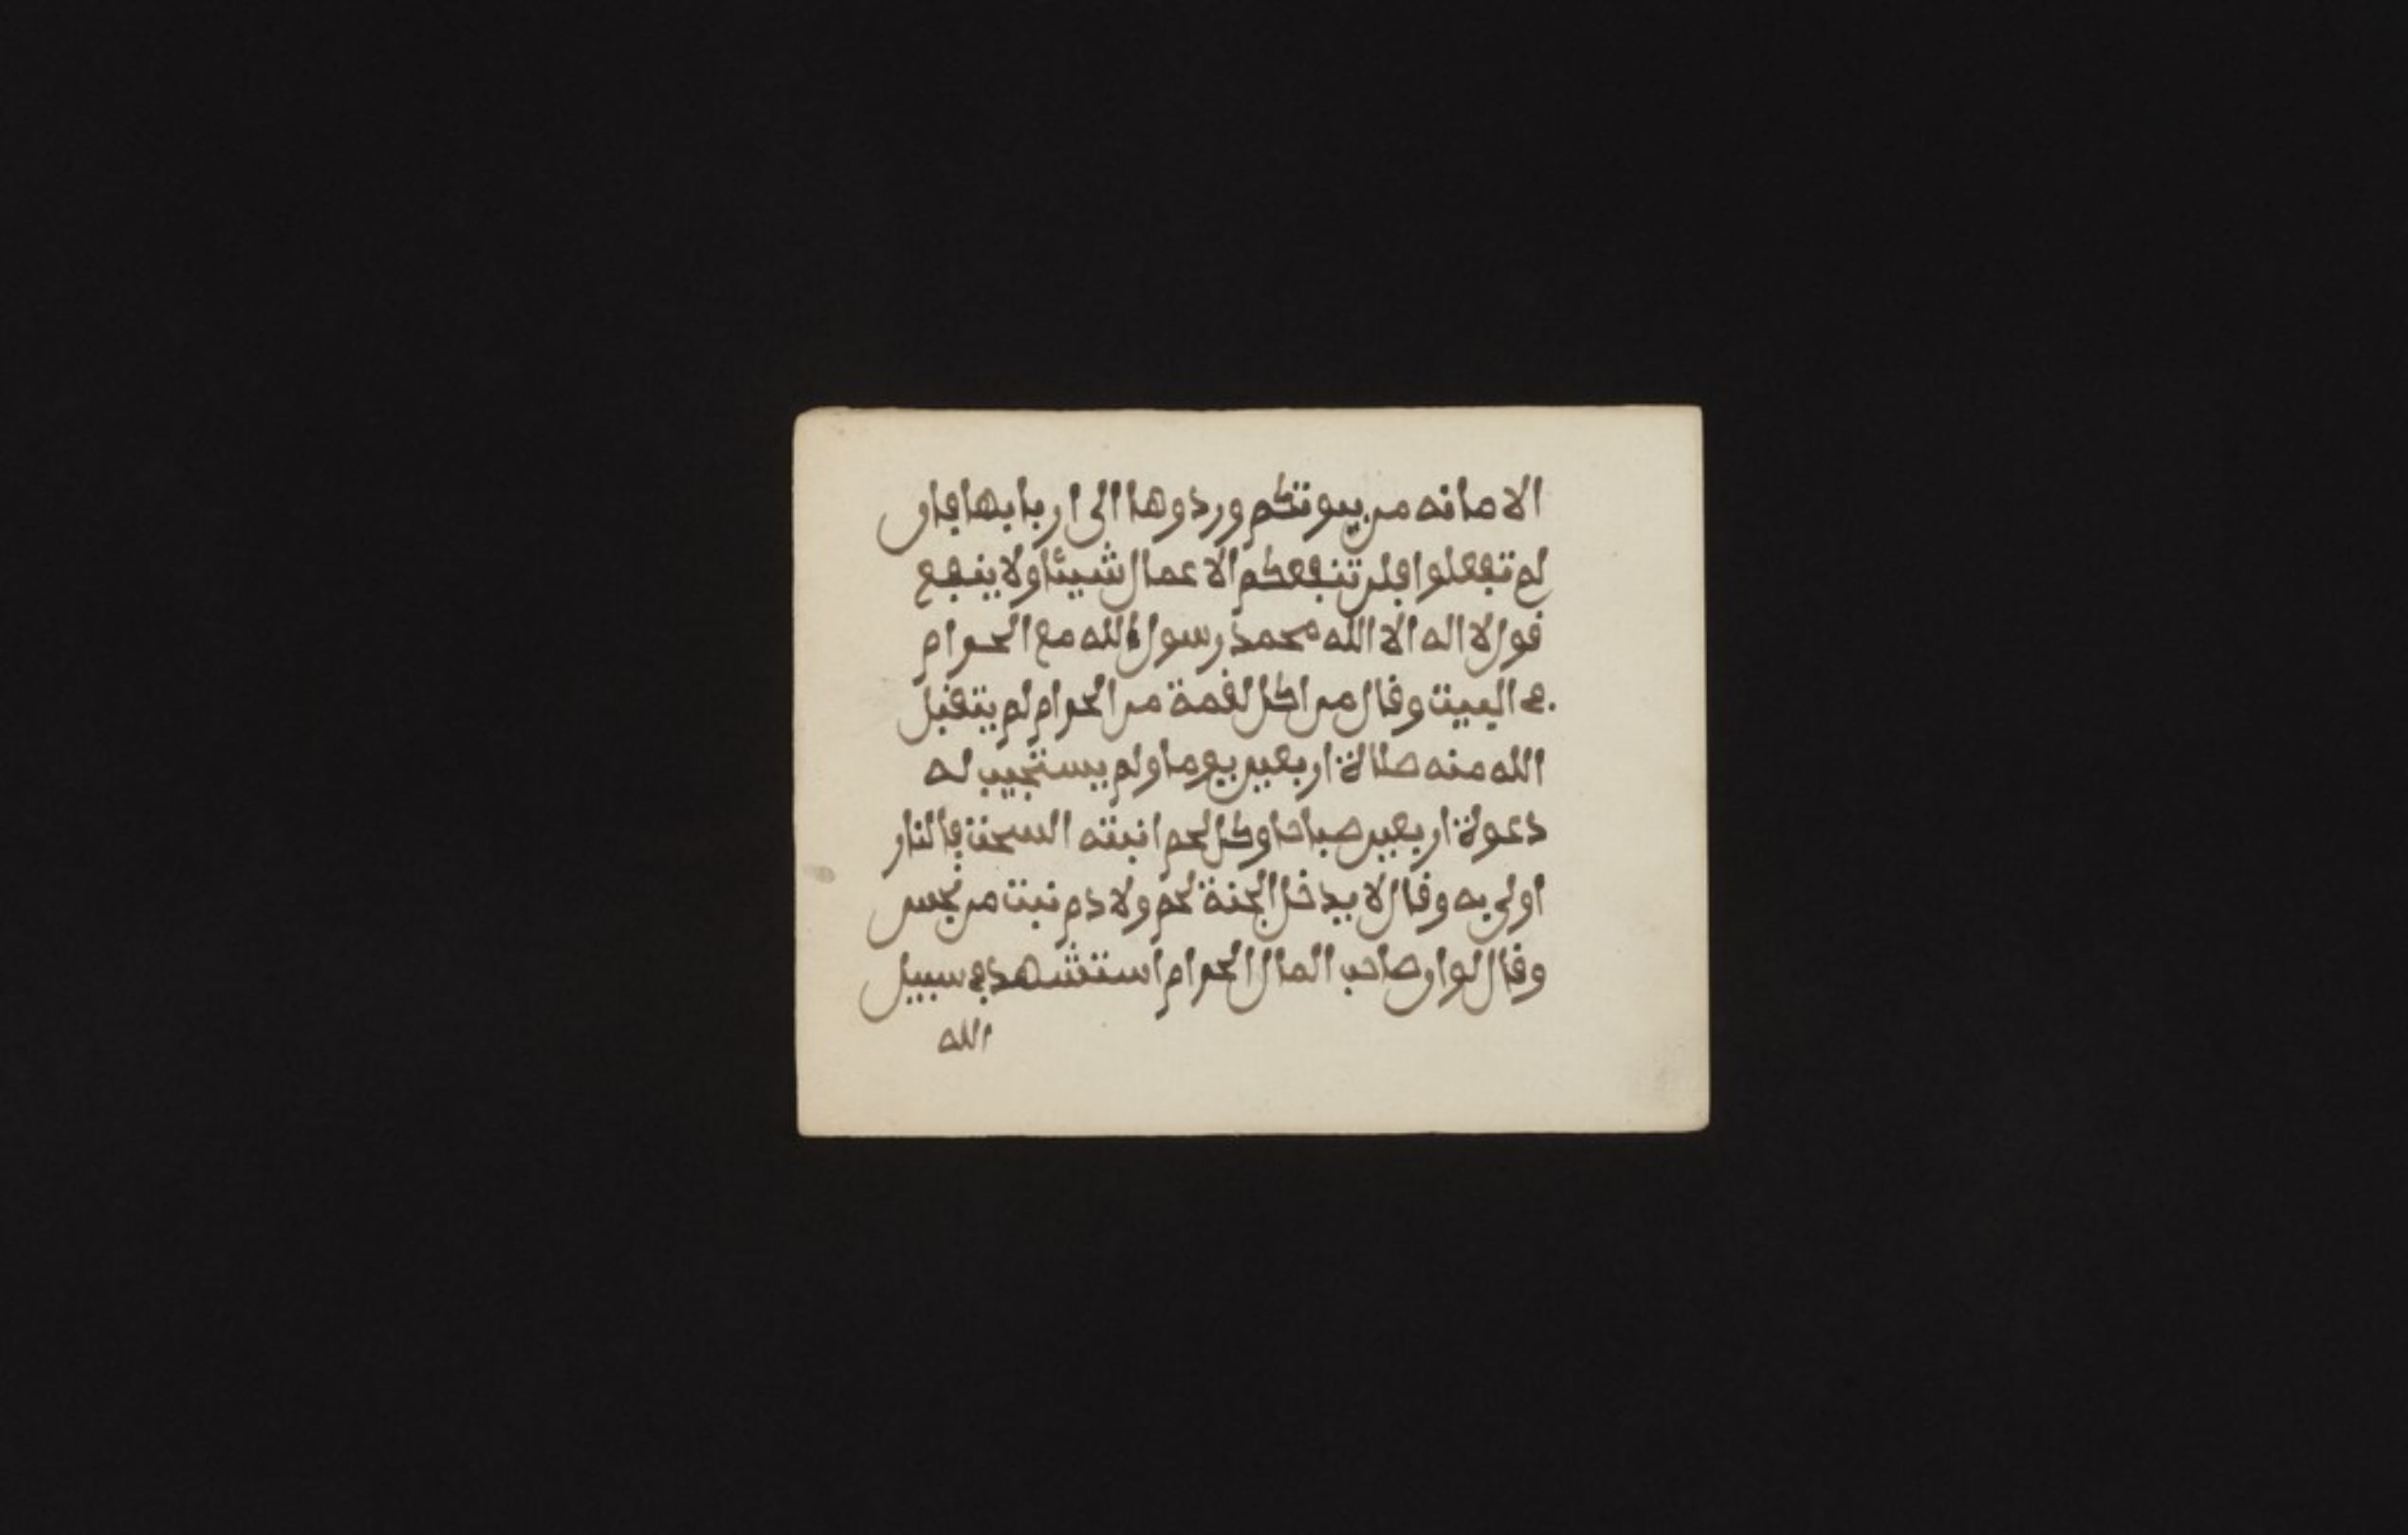 الامانه من بيوتكم وردوها الى اربابها فان
لم تفعلوا فلن تنفعكم الاعمال شيئا ولا ينفع
قول لا اله الا الله محمد رسول الله مع الحرام
في البيت وقال من اكل لقمة من الحرام لم يتقبل
الله منه صلاة اربعين يوما ولم يستجيب له
دعوة اربعين صباحا وكل لحم انبته السحت فالنار
اولى به وقال لا يدخل الجنة لحم ولا دم نبت من نجس
وقال لو ان صاحب المال الحرام استشهد في سبيل
الله